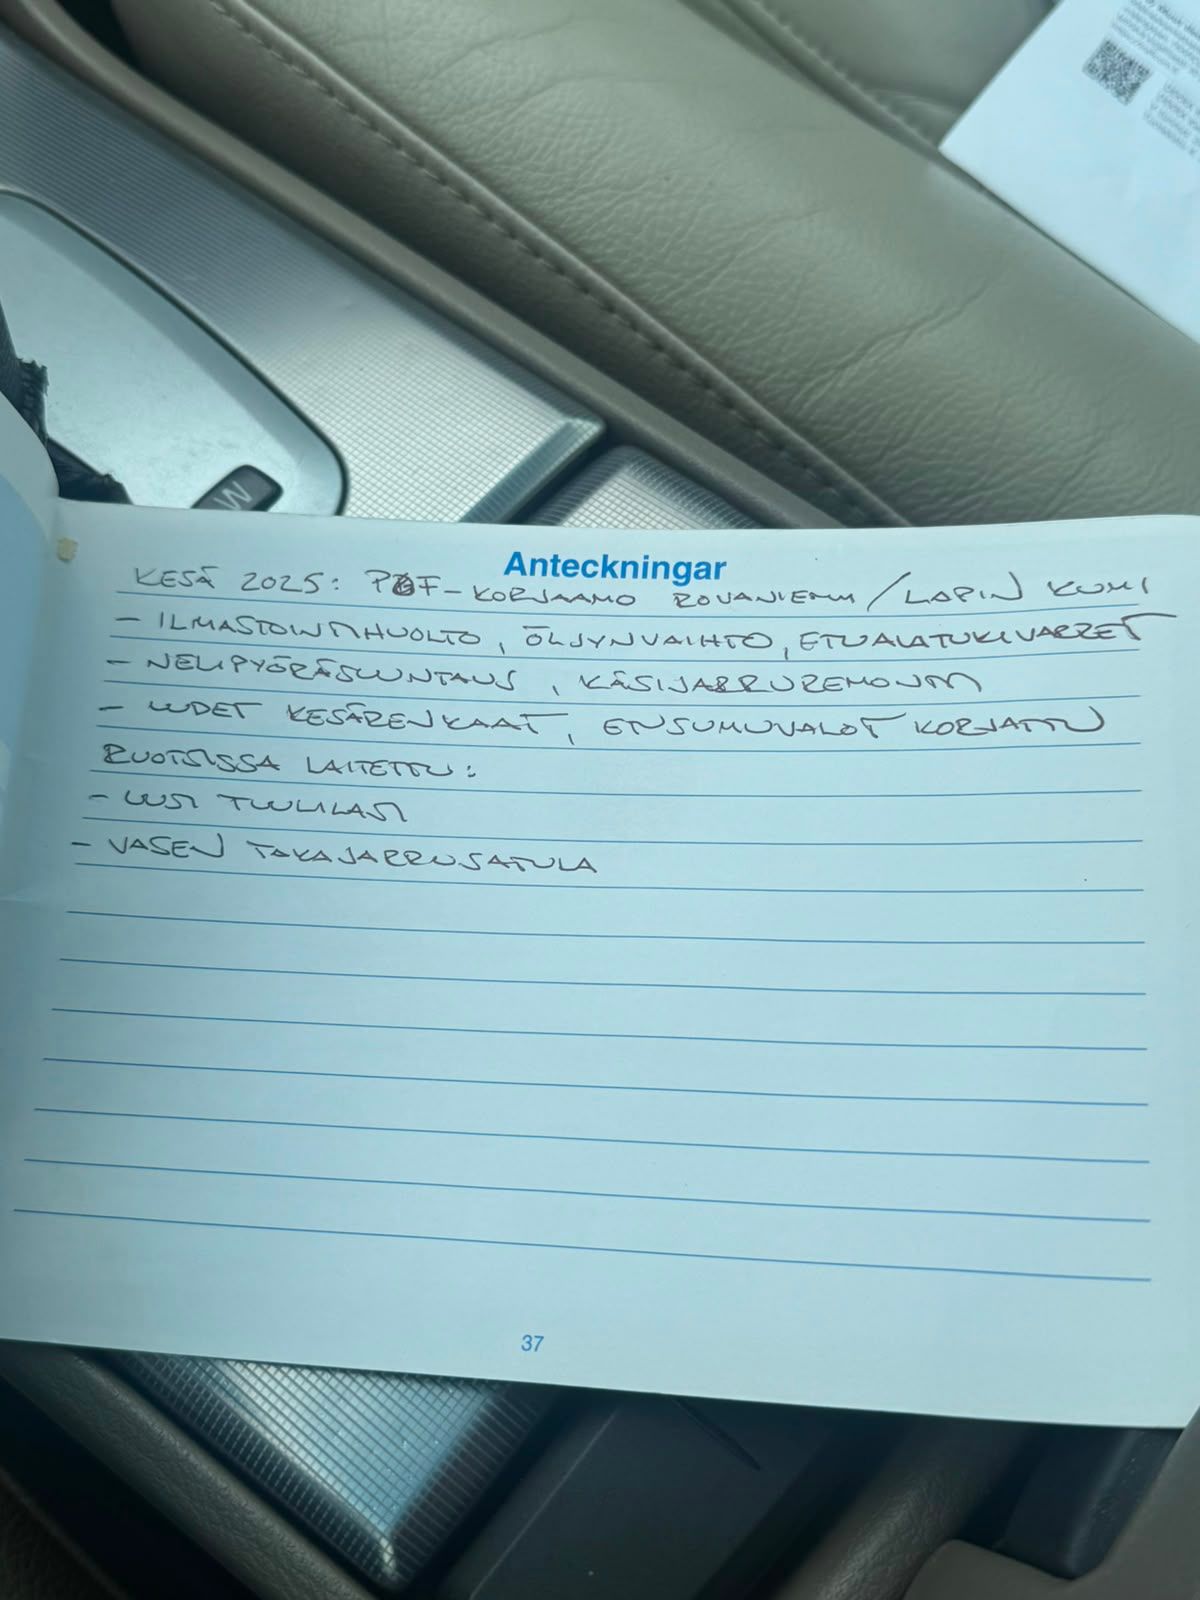 Anteckningar
KESÄ 2025: POF-KORJAAMO ROVANIEMI / LAPIN KUMI
- ILMASTOINTIHUOLTO, ÖLJYNVAIHTO, ETUALATUKIVARRET
- NELIPYÖRÄSUUNTAUS, KÄSIJARRUREMONTTI
- UUDET KESÄRENKAAT, ETUSUMUVALOT KORJATTU
RUOTSISSA LAITETTU:
- UUSI TUULILASI
- VASEN TAKAJARRUSATULA
37
W